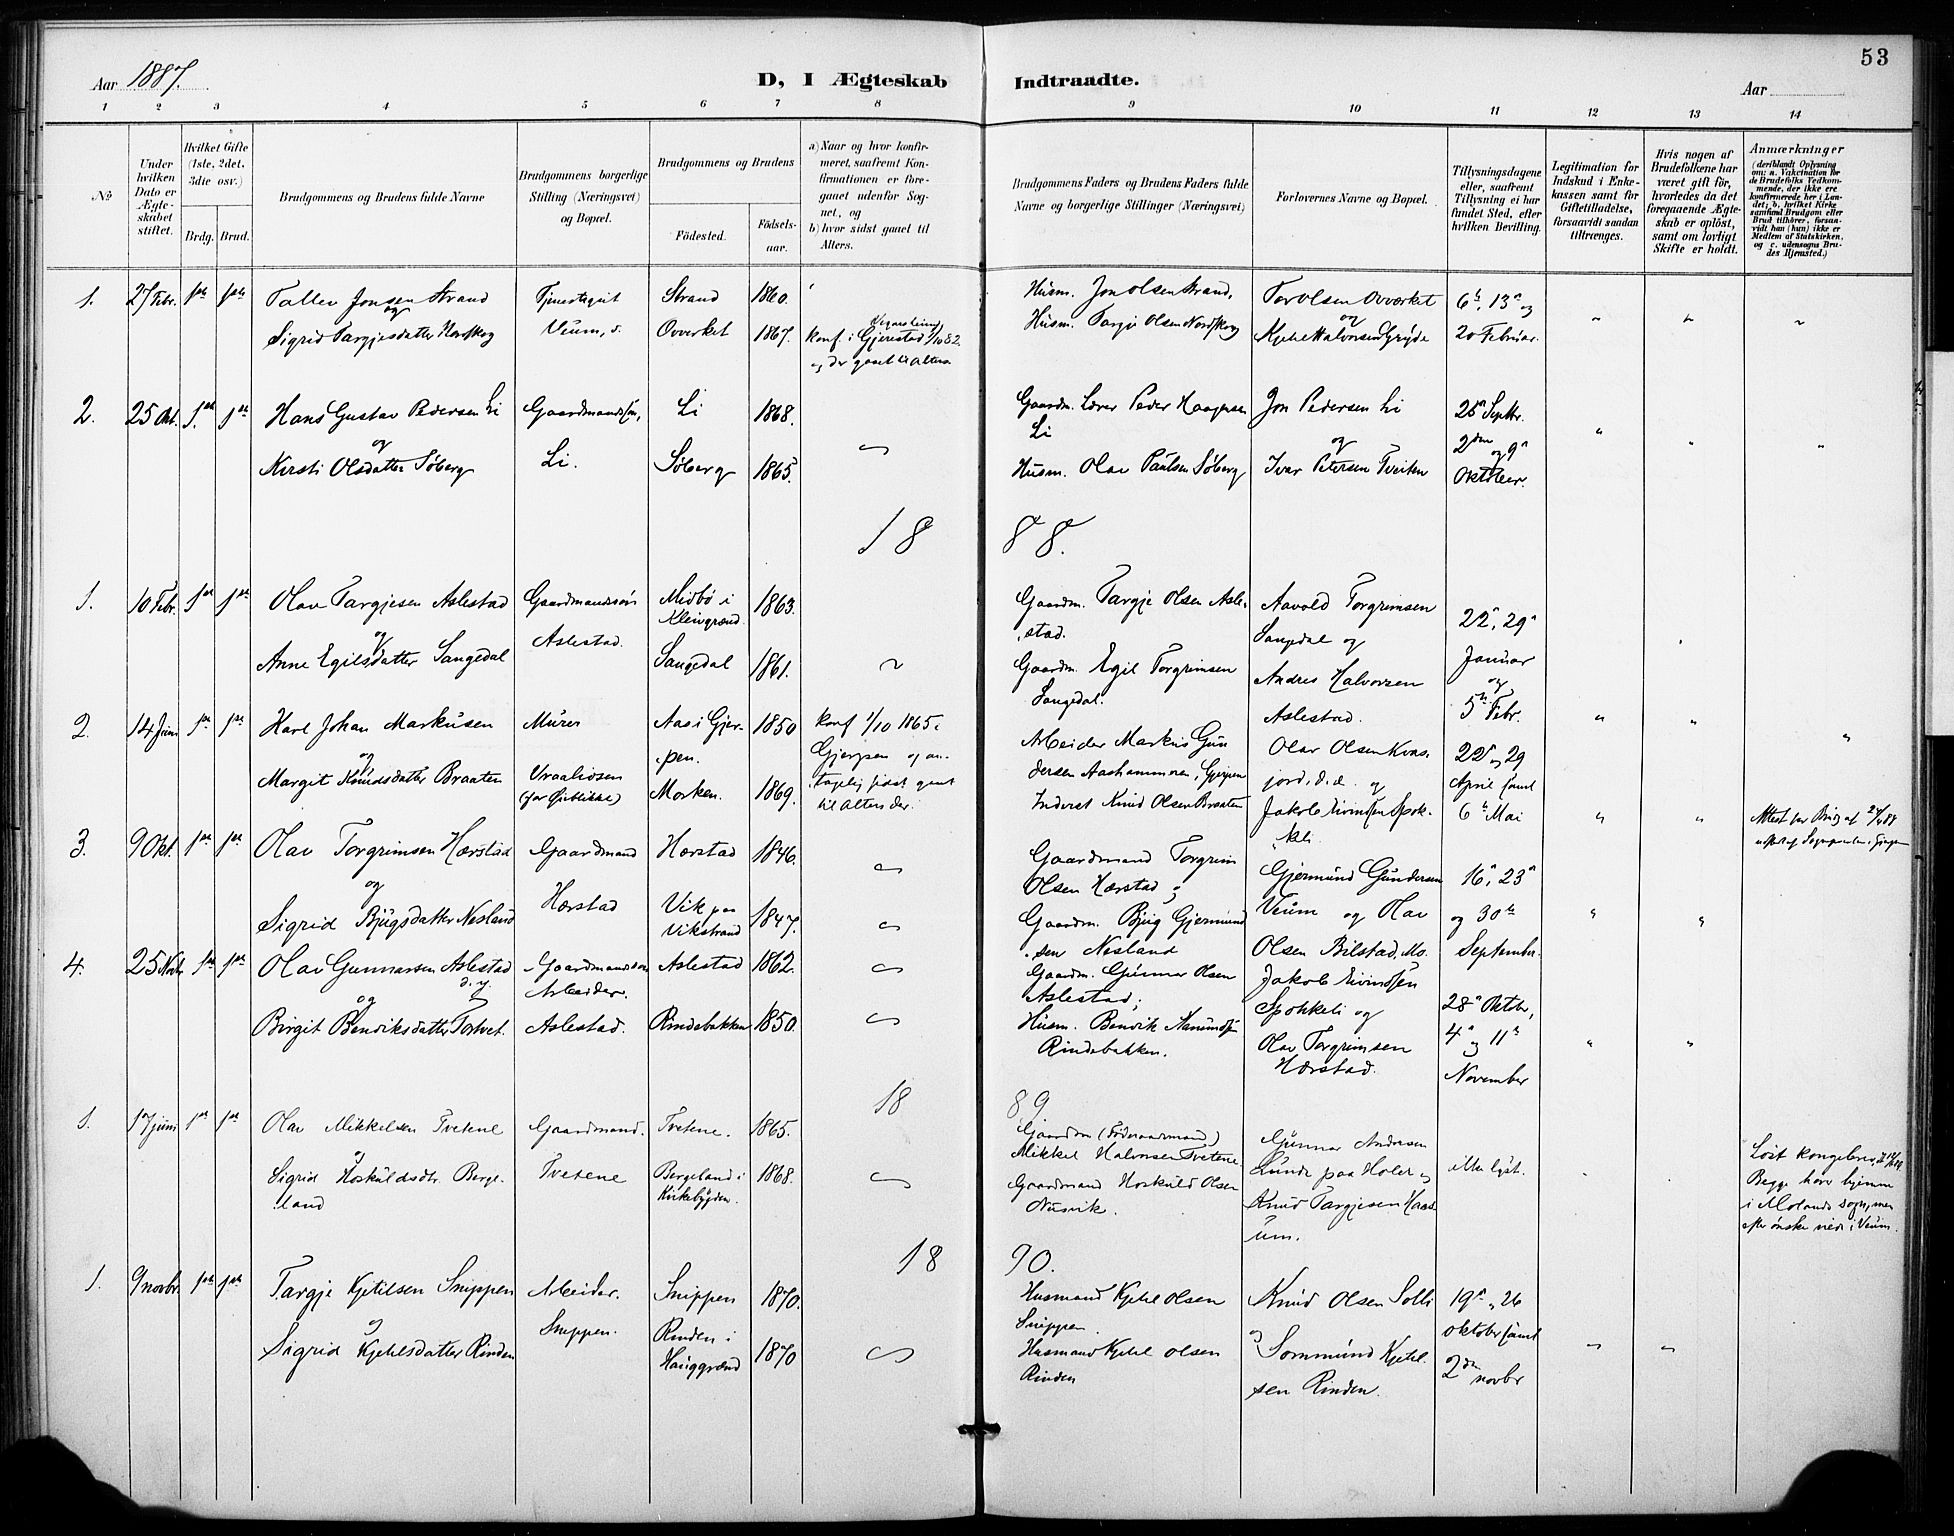 53
Aar 1887.
D, I Ægteskab Indtraadte.
Aar
1 2 3 4 5 6 7 8 9 10 11 12 13 14
No
Under hvilken Dato er Ægteskabet stiftet.
Hvilket Gifte (1ste, 2det, 3die osv.)
Brdg. Brud.
Brudgommens og Brudens fulde Navne
Brudgommens borgerlige Stilling (Næringsvei) og Bopæl.
Brudgommens og Brudens
Fødested.
Fødselsaar.
a) Naar og hvor konfirmeret, saafremt Konfirmationen er foregaaet udenfor Sognet, og
b) hvor sidst gaaet til Alters.
Brudgommens Faders og Brudens Faders fulde Navne og borgerlige Stillinger (Næringsvei)
Forlovernes Navne og Bopæl.
Tillysningsdagene eller, saafremt Tillysning ei har fundet Sted, efter hvilken Bevilling.
Legitimation for Indskud i Enkekassen samt for Giftetilladelse, forsaavidt saadan tiltrænges.
Hvis nogen af Brudefolkene har været gift før, hvorledes da det foregaaende Ægteskab er opløst, samt om lovligt Skifte er holdt.
Anmærkninger
(deriblandt Oplysning om: a. Vakcination for de Brudefolks Vedkommende, der ikke ere konfirmerede her i Landet; b. hvilket Kirkesamfund Brudgom eller Brud tilhører, forsavidt han (hun) ikke er Medlem af Statskirken, og c. udensogns Brudes Hjemsted.)
1. 27 Febr. 1ste 1ste Tallev Jonsen Strand Strand 1860. Husm. Jon Olsen Strand, Tor Olsen Overket 6te, 13de og
og
Sigrid Targjesdatter Nordskog Veum, Overket 1867. konf. i Gjerestad 1/10 82. Husm. Targje Olsen Nordskog og Kjetil Halvorsen Gryde 20 Februar.
og der gaaet til Alters
2. 25 Okt. 1ste 1ste Hans Gustav Pedersen Li Gaardmandssøn, Li 1868. Gaardm. Lærer Peder Haagensen Jon Pedersen Li 25de Septbr.
og Li og 2den og 9de
Kirsti Olsdatter Søberg Li. Søberg 1865. Husm. Olav Paulsen Søberg Ivar Petersen Tveiten Oktober.
1888.
1. 10 Febr. 1ste 1ste Olav Targjesen Aslestad Gaardmandssøn Midbø i 1863. Gaardm. Targje Olsen Asle- Aavold Torgrimsen 22de, 29de
og Aslestad. Kleivgrænd. stad. Sangedal og Januar
Anne Egilsdatter Sangedal Sangedal 1861. Gaardm. Egil Torgrimsen Andres Halvorsen og
Sangedal. Aslestad. 5te Febr.
2. 14 Juni 1ste 1ste Karl Johan Markusen Murer Aas i Gjer- 1850 konf 1/10 1865 i Arbeider Markus Gun Olav Olsen Kvas- 22de og 29
og pen. Gjerpen og an- dersen Aashammeren, Gjerpen jord, d.e. og April samt
Margit Knudsdatter Braaten Vraaliosen Morken. 1869. tagelig sidst gaaet Inderst Knud Olsen Braaten Jakob Eivindsen Spok- 6te Mai
(for Øieblikke) til Alters der. keli.
3. 9 Okt. 1ste 1ste Olav Torgrimsen Hærstad Gaardmand Hærstad 1846. Gaardmand Torgrim Gjermund Gundersen 16de, 23de
og Hærstad Olsen Hærstad og Veum og Olav og 30te
Sigrid Bjugsdatter Nesland Vik paa Vikstrand 1847. Gaardm. Bjug Gjermund- Olsen Bilstad, Mo. September.
sen Nesland
4. 25 Novbr 1ste 1ste Olav Gunnarsen Aslestad Gaardmandssøn Aslestad 1862. Gaardm. Gunnar Olsen Jakob Eivindsen
d.y. Arbeider. Aslestad; Spokkeli og 28de Oktobr,
og
Birgit Benviksdatter Tortvet. Aslestad. Rindebakken 1850. Husm. Benvik Aanundsen Olav Torgrimsen 4de og 11te
Rindebakken. Hærstad. November
1889
1. 17 juni 1ste 1ste Olav Mikkelsen Tvetene Gaardmand. Tvetene. 1865. Gaardm (Føderaadsmand) Gunnar Andersen
og Mikkel Halvorsen Tvetene. Lunde paa Holer og ikke lyst.
Sigrid Hoskuldsdtr. Berge- Tvetene Bergeland i 1868. Gaardmand Hoskuld Olsen Knud Targjesen Haas
land Kirkebygden. Nusvik. um.
Løst kongebrev
Begge have hjemme
i Molands sogn, men
efter ønske viede i Veum.
1890.
1. 9 novbr. 1ste 1ste Targje Kjetilsen Snippen Arbeider. Snippen 1870. Husmand Kjetil Olsen Knud Olsen Solli 19de, 26
og Snippen. Snippen. og oktober samt
Sigrid Kjetilsdatter Rinden Rinden i Hauggrænd 1870 Husmand Kjetil Olsen Sommund Kjetil- 2den novbr
Rinden sen Rinden.